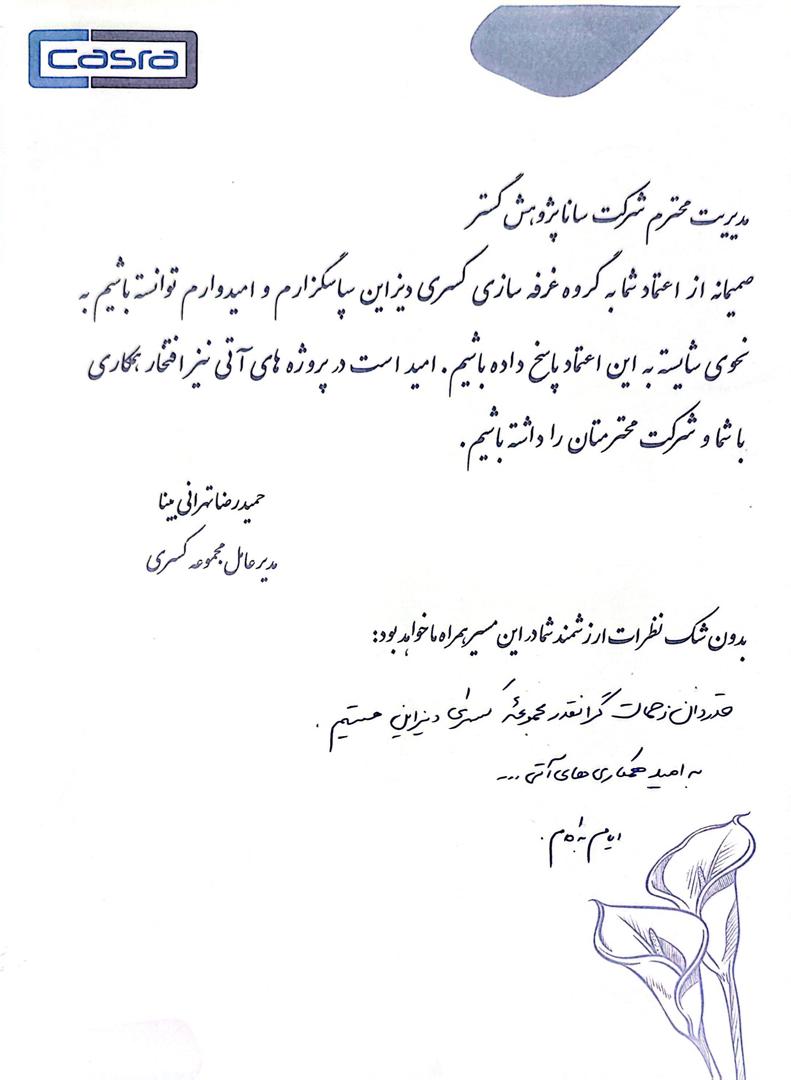 casra
مدیریت محترم شرکت سانا پژوهش گستر
صمیمانه از اعتماد شما به گروه غرفه سازی کسری دیزاین سپاسگزارم و امیدوارم توانسته باشیم به
نحوی شایسته به این اعتماد پاسخ داده باشیم. امید است در پروژه های آتی نیز افتخار همکاری
با شما و شرکت محترمتان را داشته باشیم.
حمیدرضا تهرانی بینا
مدیرعامل مجموعه کسری
بدون شک نظرات ارزشمند شما در این مسیر همراه ما خواهد بود:
قدردان زحمات گرانقدر مجموعهٔ کسرای دیزاین هستیم.
به امید همکاری های آتی ...
ایام به کام.